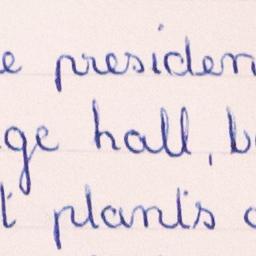 e presiden
ge hall, b
t plants